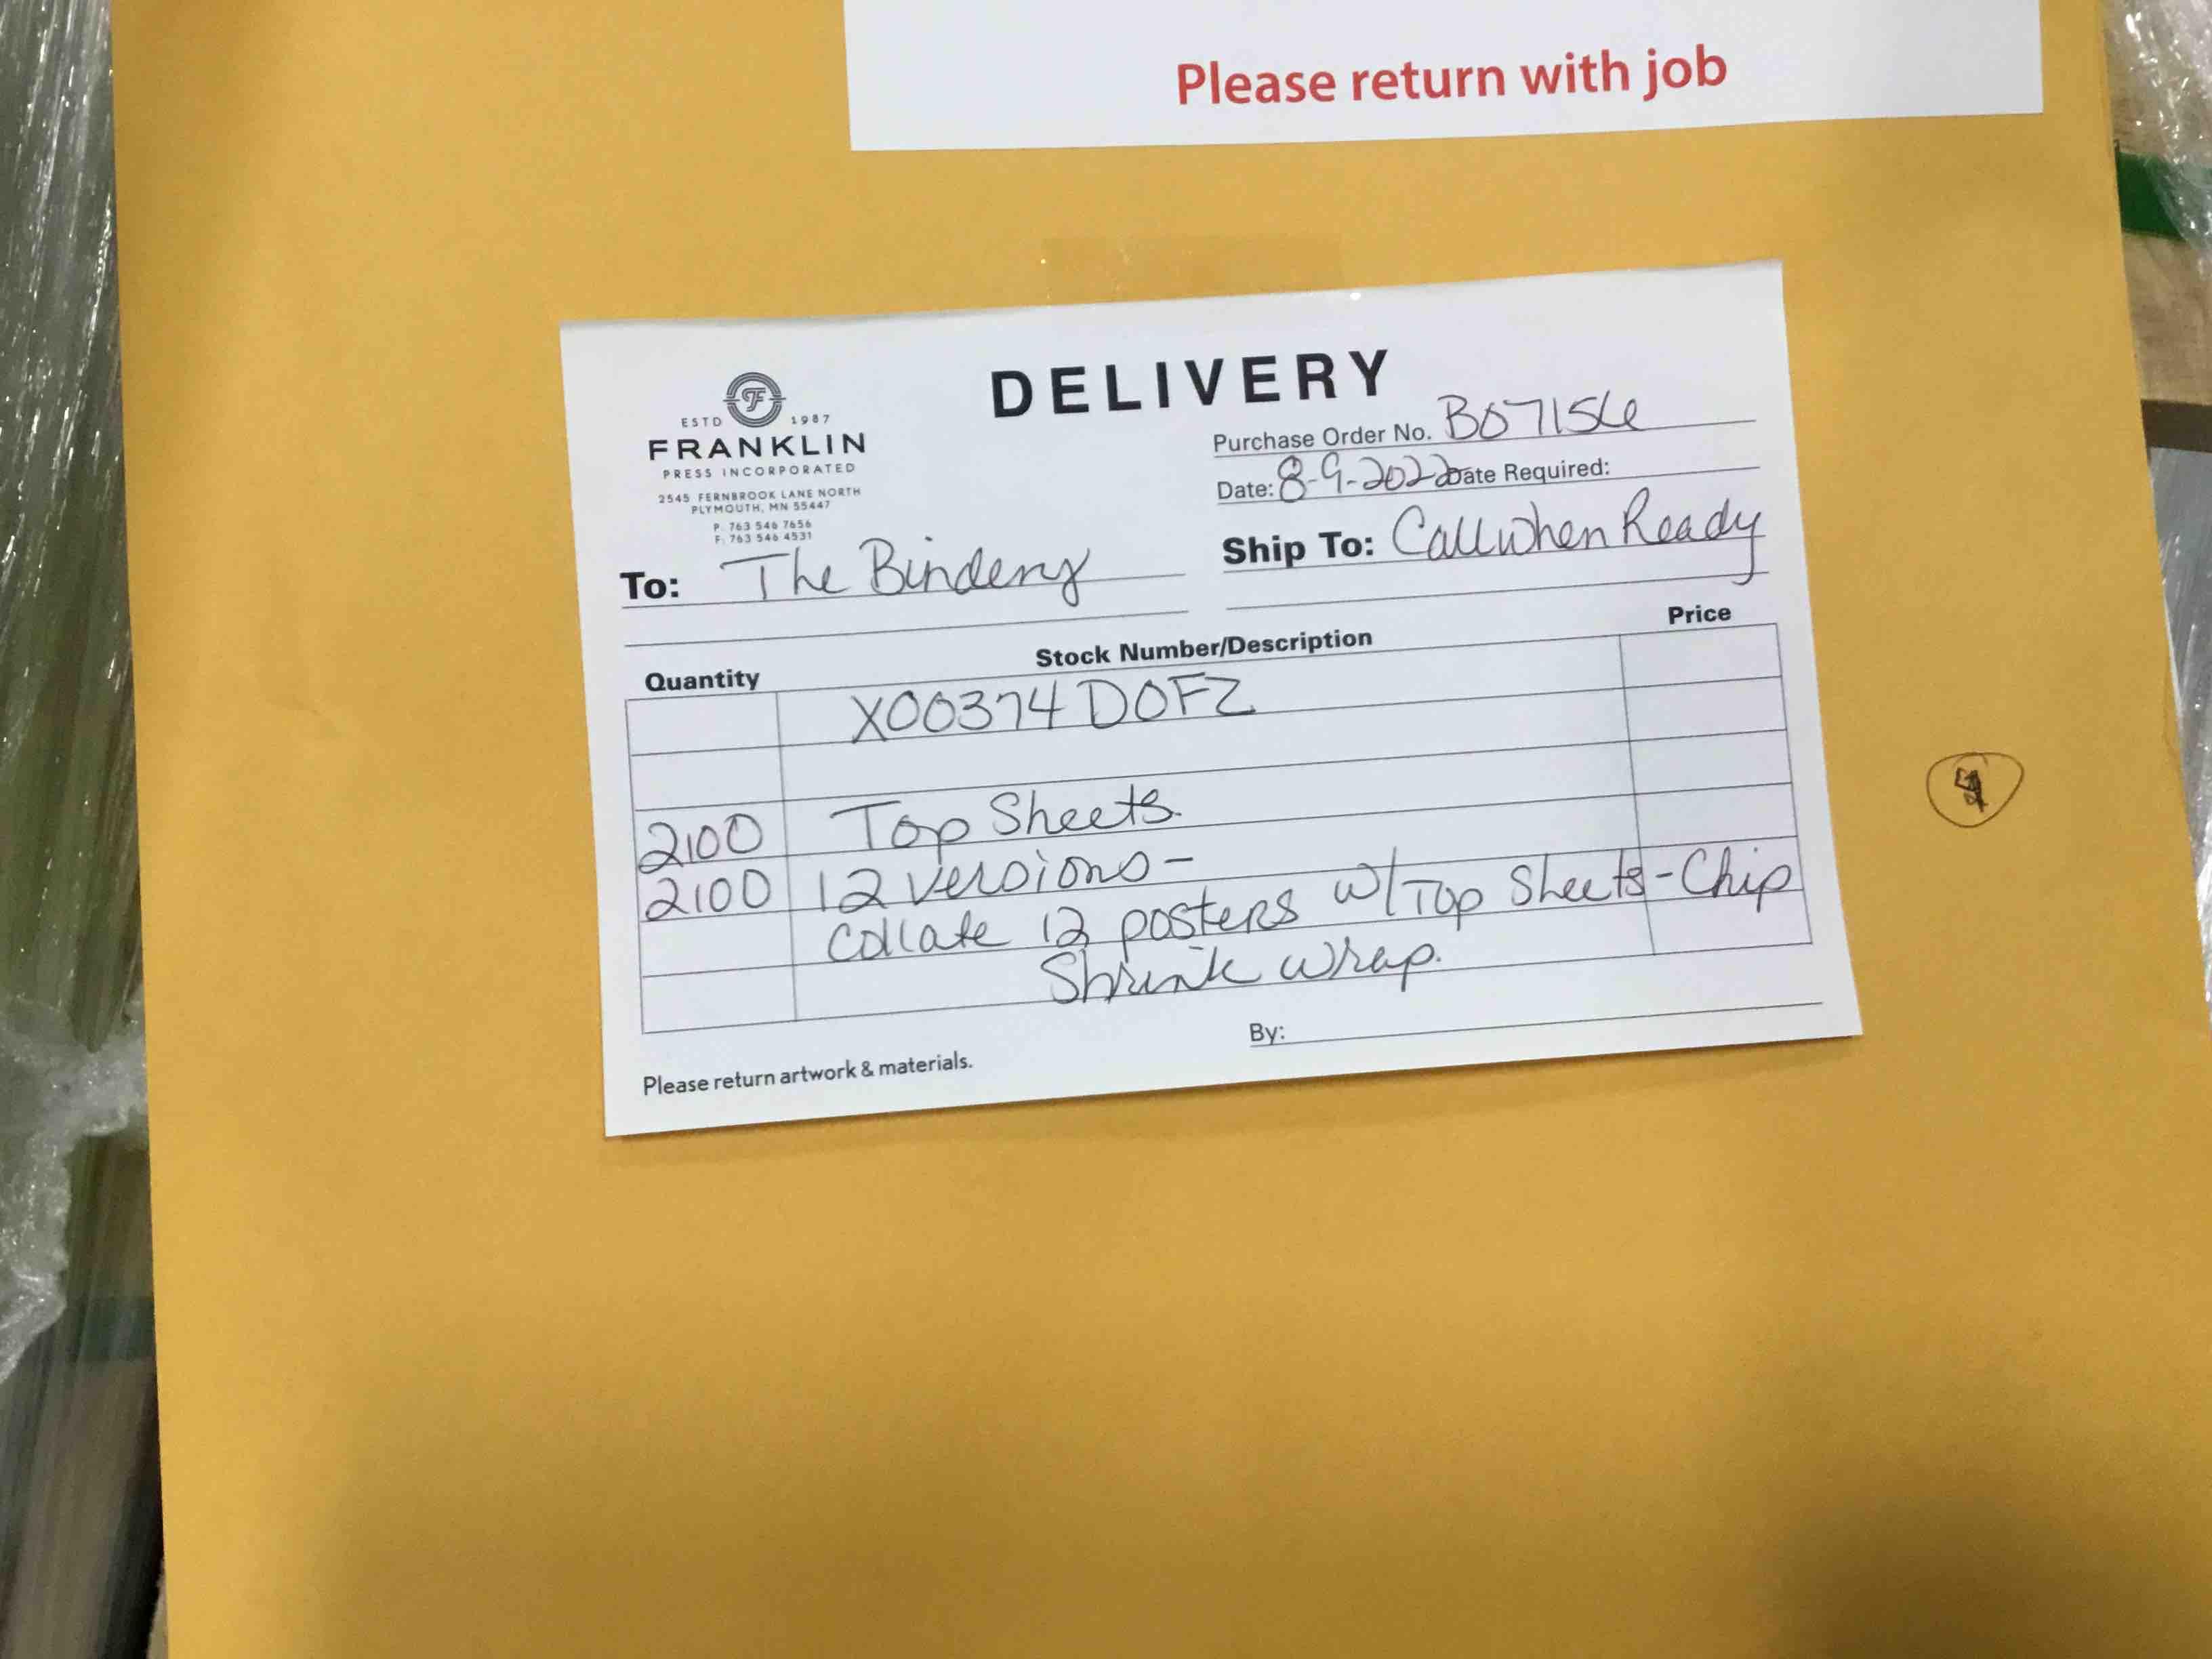 Please return with job
DELIVERY
ESTD 1987
FRANKLIN
PRESS INCORPORATED
2545 FERNBROOK LANE NORTH
PLYMOUTH, MN 55447
P: 763 546 7656
F: 763 546 4531
Purchase Order No. B07156
Date: 8-9-2022 Date Required:
To: The Bindery
Ship To: Call when Ready
Quantity Stock Number/Description Price
X00374 DOFZ
2100 Top Sheets
2100 12 versions -
Collate 12 posters w/ Top Sheets - Chip
Shrink wrap.
By:
Please return artwork & materials.